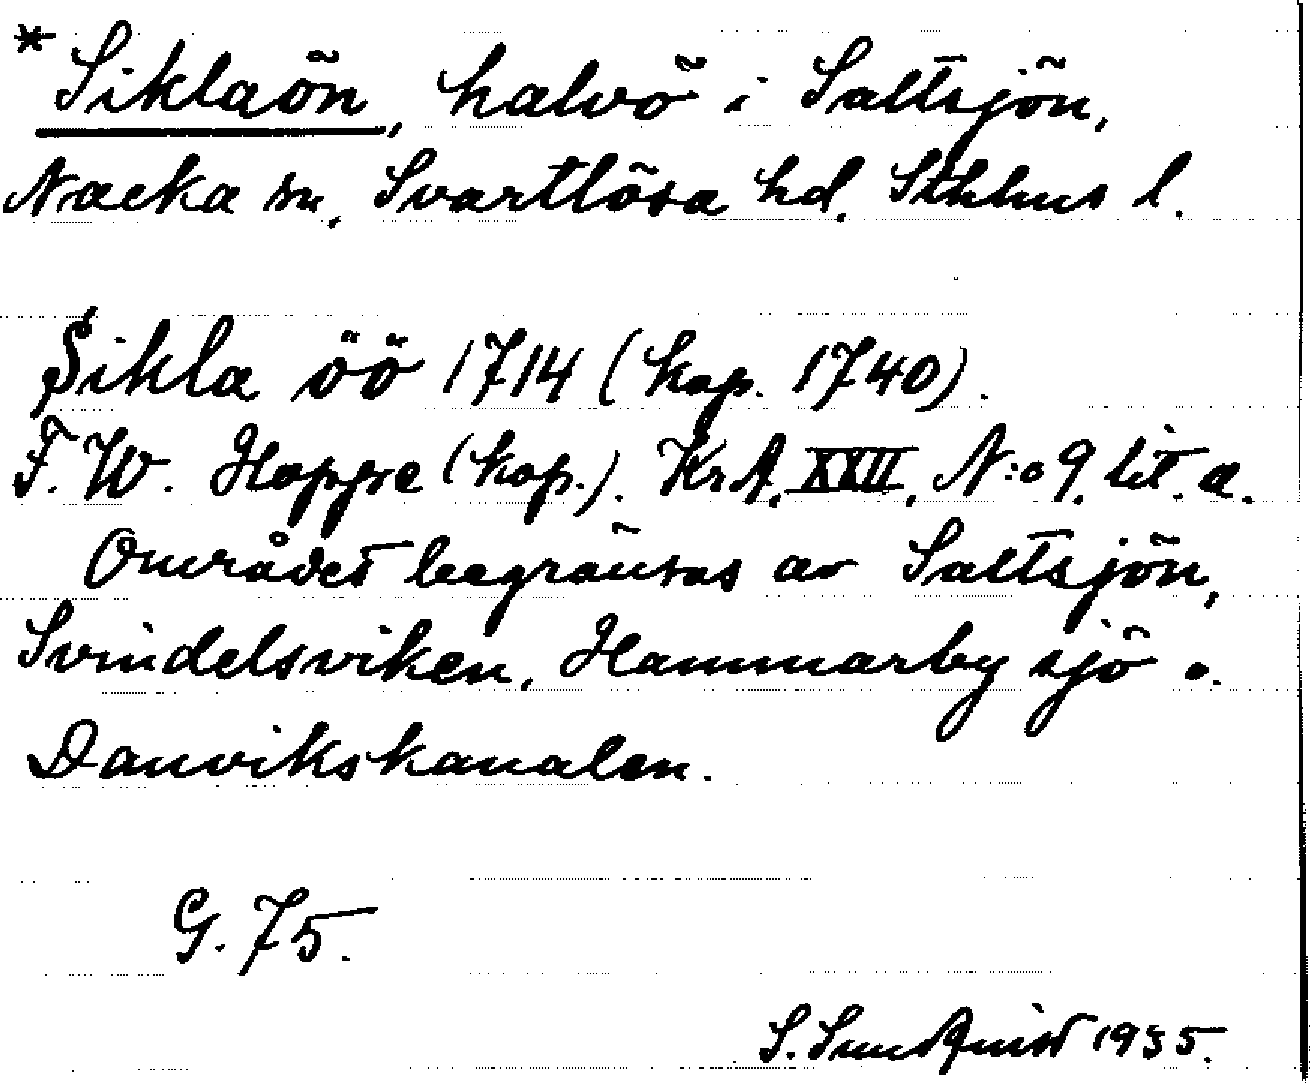 * Siklaön, halvö i Saltsjön,
Nacka sn, Svartlösa hd, Sthlms l.
Sikla öö 1714 (kop. 1740).
F. W. Hoppe (kop.). KrA, XXII, N:o 9, lit. a.
Området begränsas av Saltsjön,
Svindelsviken, Hammarby sjö o.
Danvikskanalen.
G. 75.
S. Sundquist 1935.